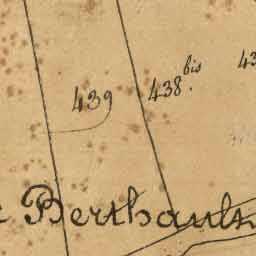 439
438 bis.
43
Berthault